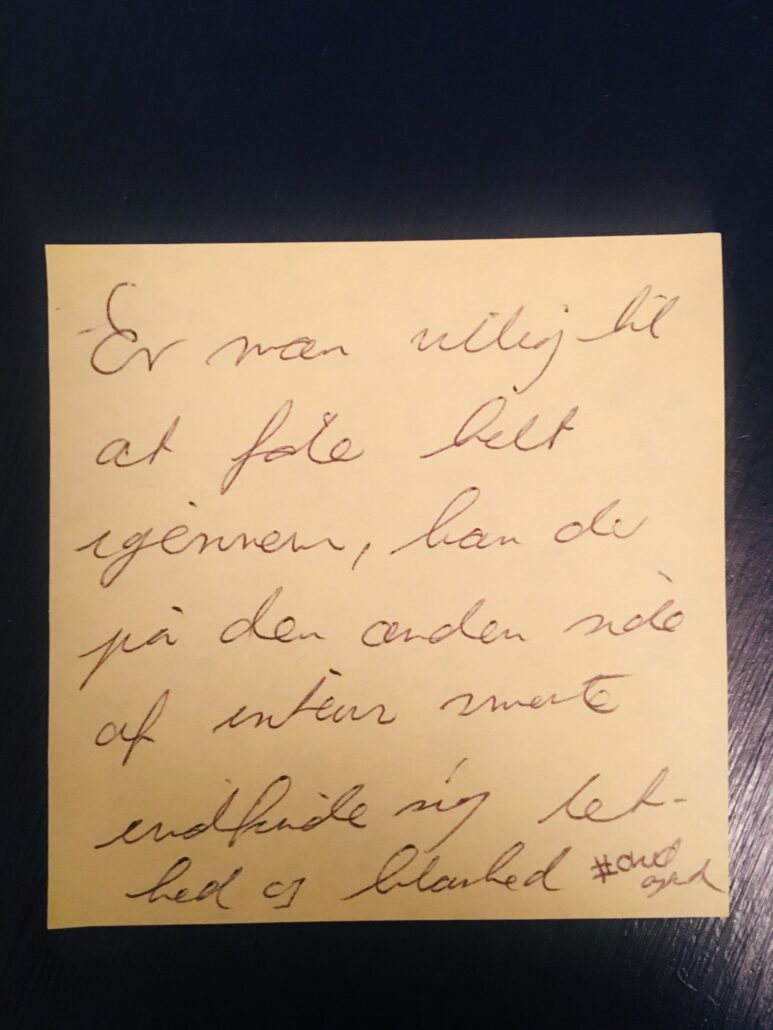 Er man villig til
at føle helt
igennem, kan der
på den anden side
af intens smerte
indfinde sig let-
hed og klarhed